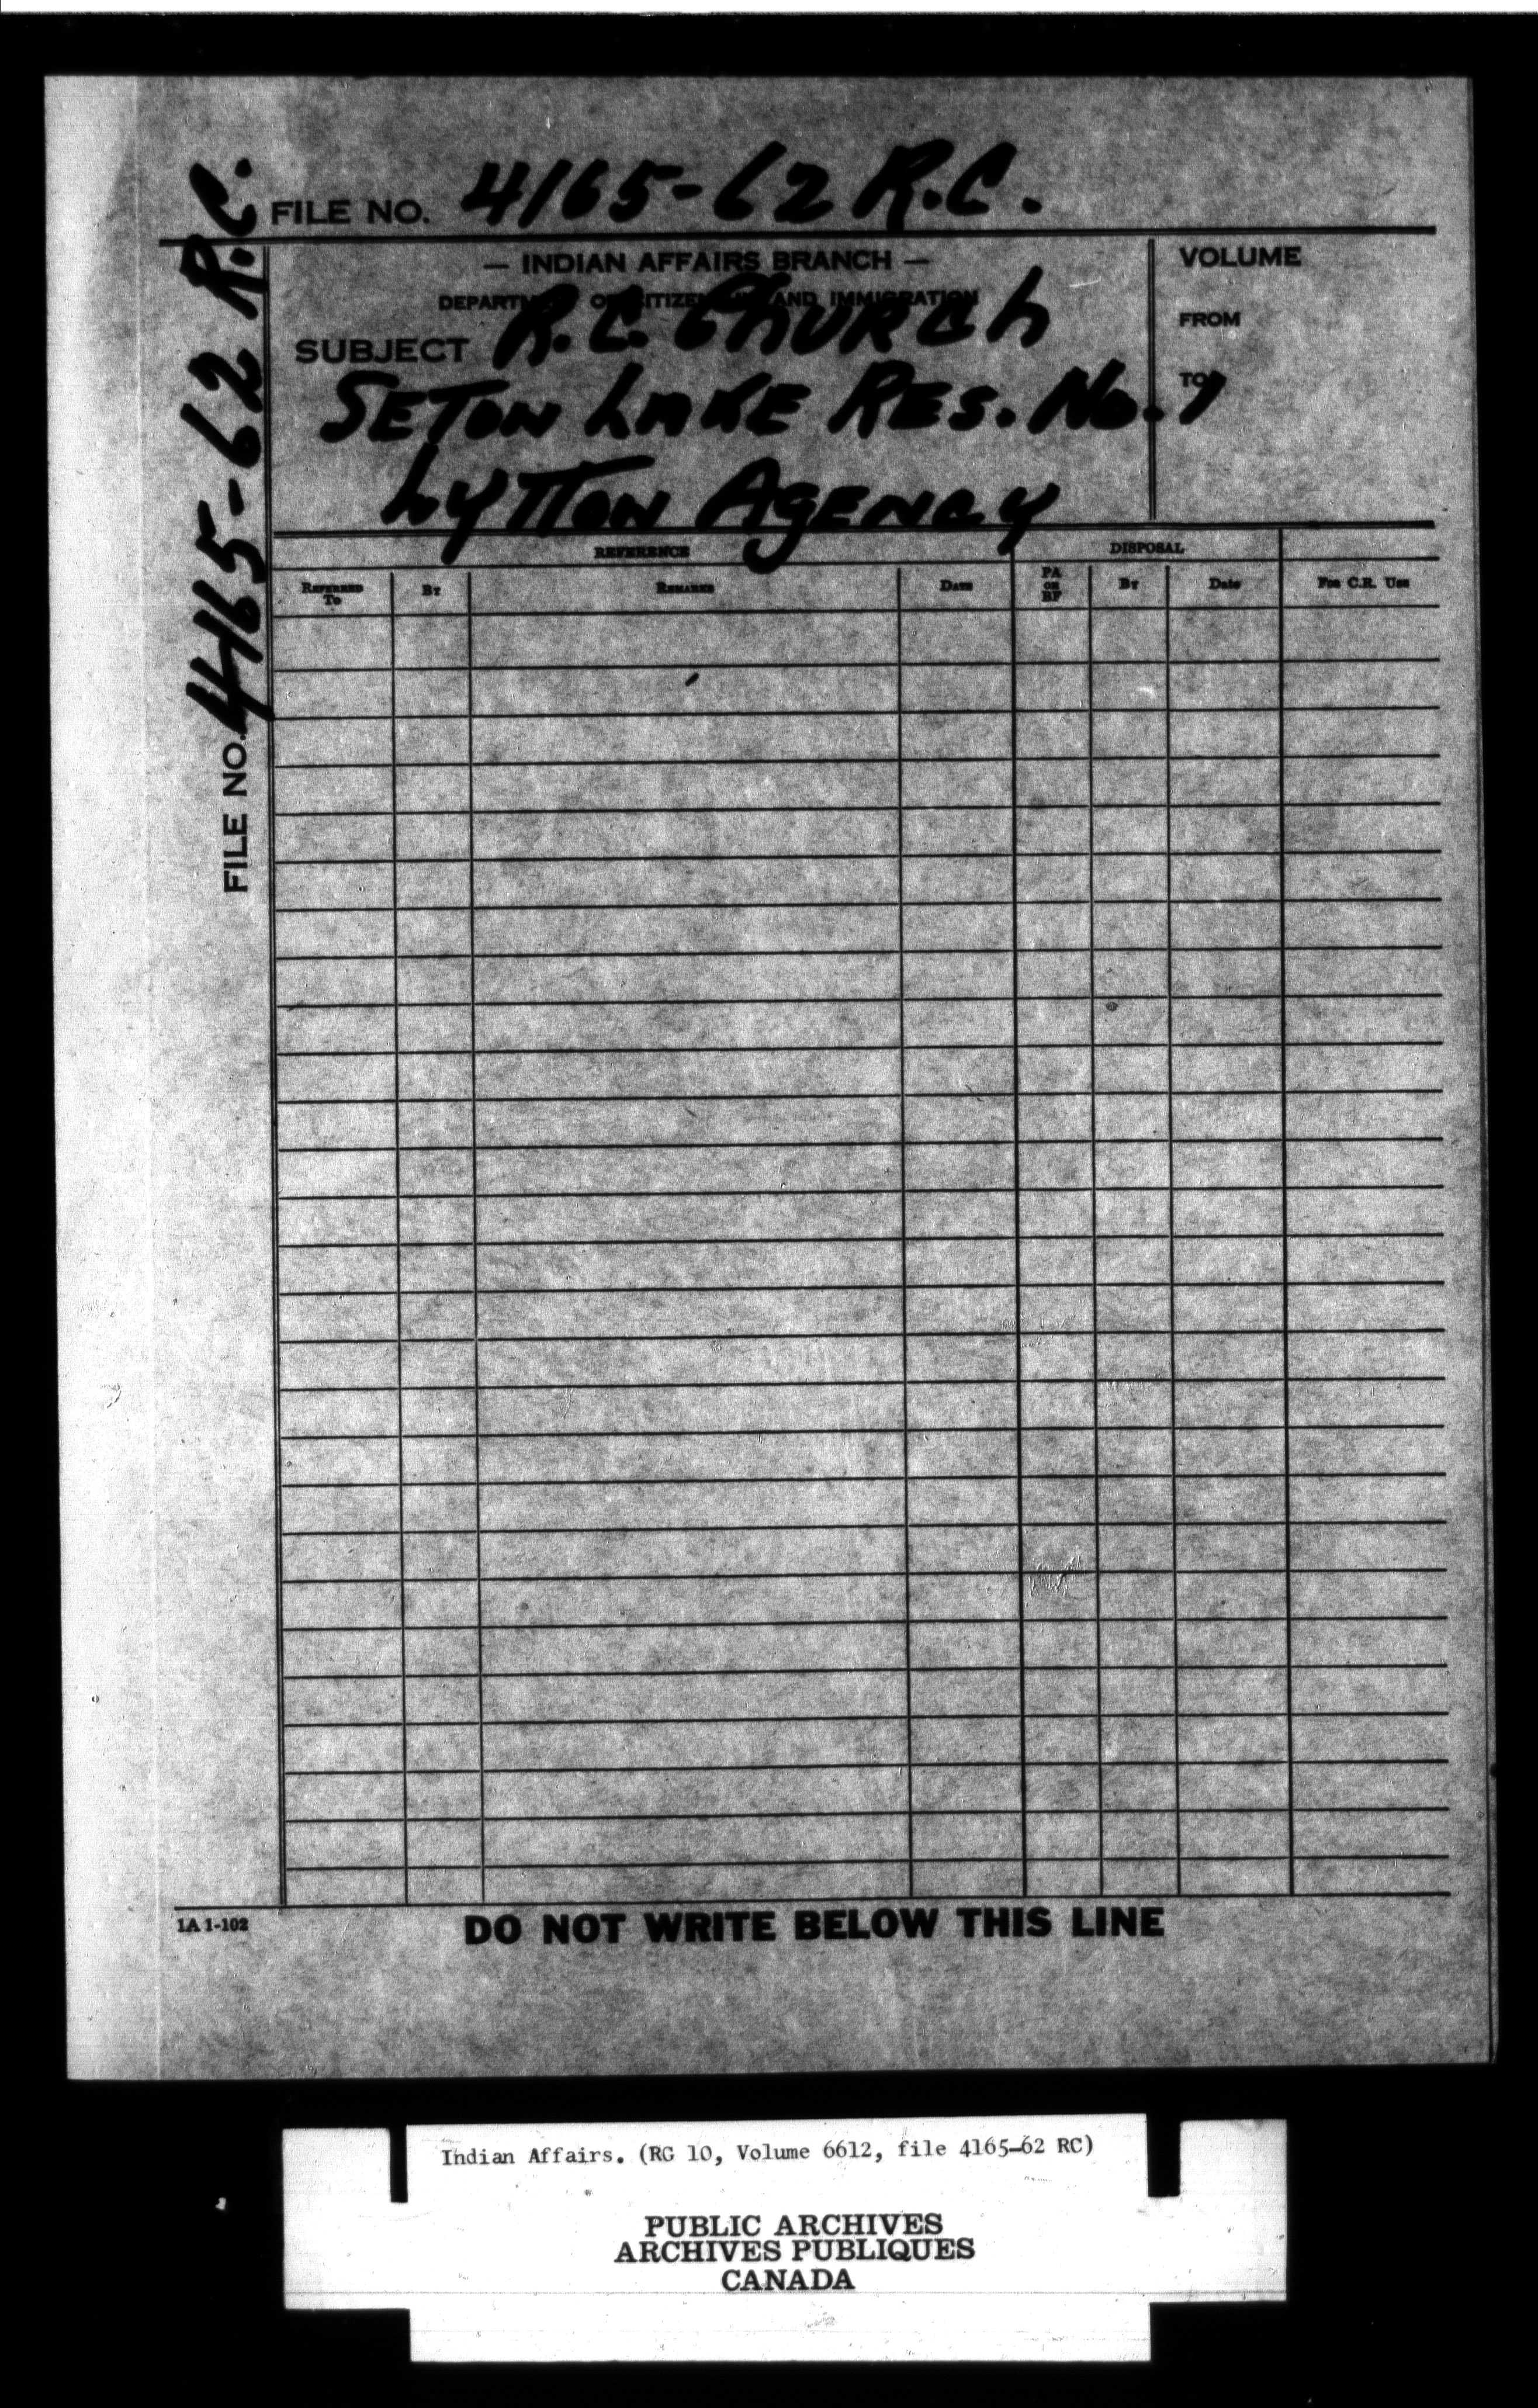 FILE NO. 4165-62 R.C.
— INDIAN AFFAIRS BRANCH —
DEPARTMENT OF CITIZENSHIP AND IMMIGRATION
SUBJECT R.C. CHURCH
SETON LAKE RES. No. 7
LYTTON AGENCY
VOLUME
FROM
TO
REFERENCE
DISPOSAL
REFERRED TO
BY
REMARKS
DATE
PA OR BF
BY
Date
FOR C.R. USE
FILE NO. 4165-62 R.C.
1A 1-102
DO NOT WRITE BELOW THIS LINE
Indian Affairs. (RG 10, Volume 6612, file 4165-62 RC)
PUBLIC ARCHIVES
ARCHIVES PUBLIQUES
CANADA